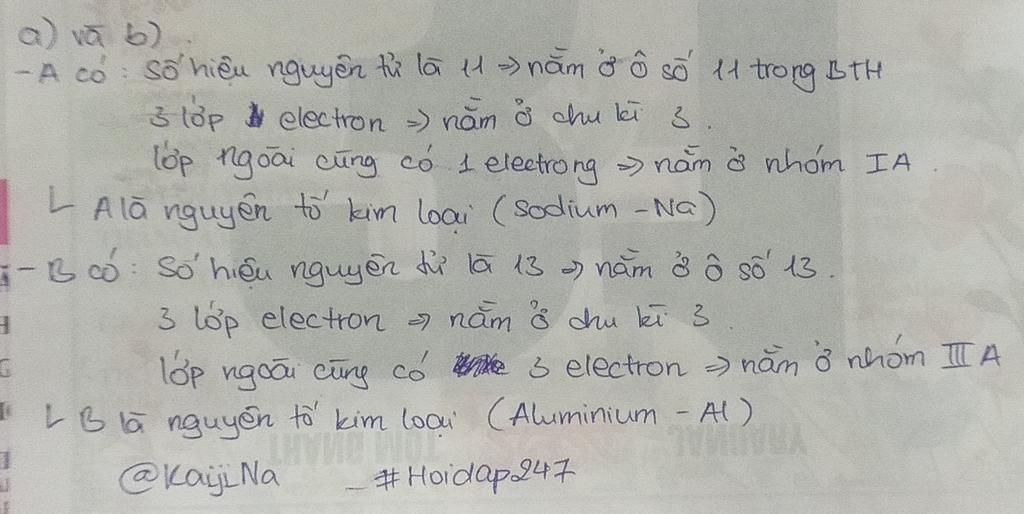 a) và b)
- A có : Số hiệu nguyên tử là 11 => nằm ở ô số 11 trong BTH
3 lớp electron => nằm ở chu kì 3.
lớp ngoài cùng có 1 electrong => nằm ở nhóm IA.
A là nguyên tố kim loại (Sodium - Na)
- B có : Số hiệu nguyên tử là 13 => nằm ở ô số 13.
3 lớp electron => nằm ở chu kì 3.
lớp ngoài cùng có 3 electron => nằm ở nhóm IIIA
B là nguyên tố kim loại (Aluminium - Al)
@KaijiNa _#Hoidap247